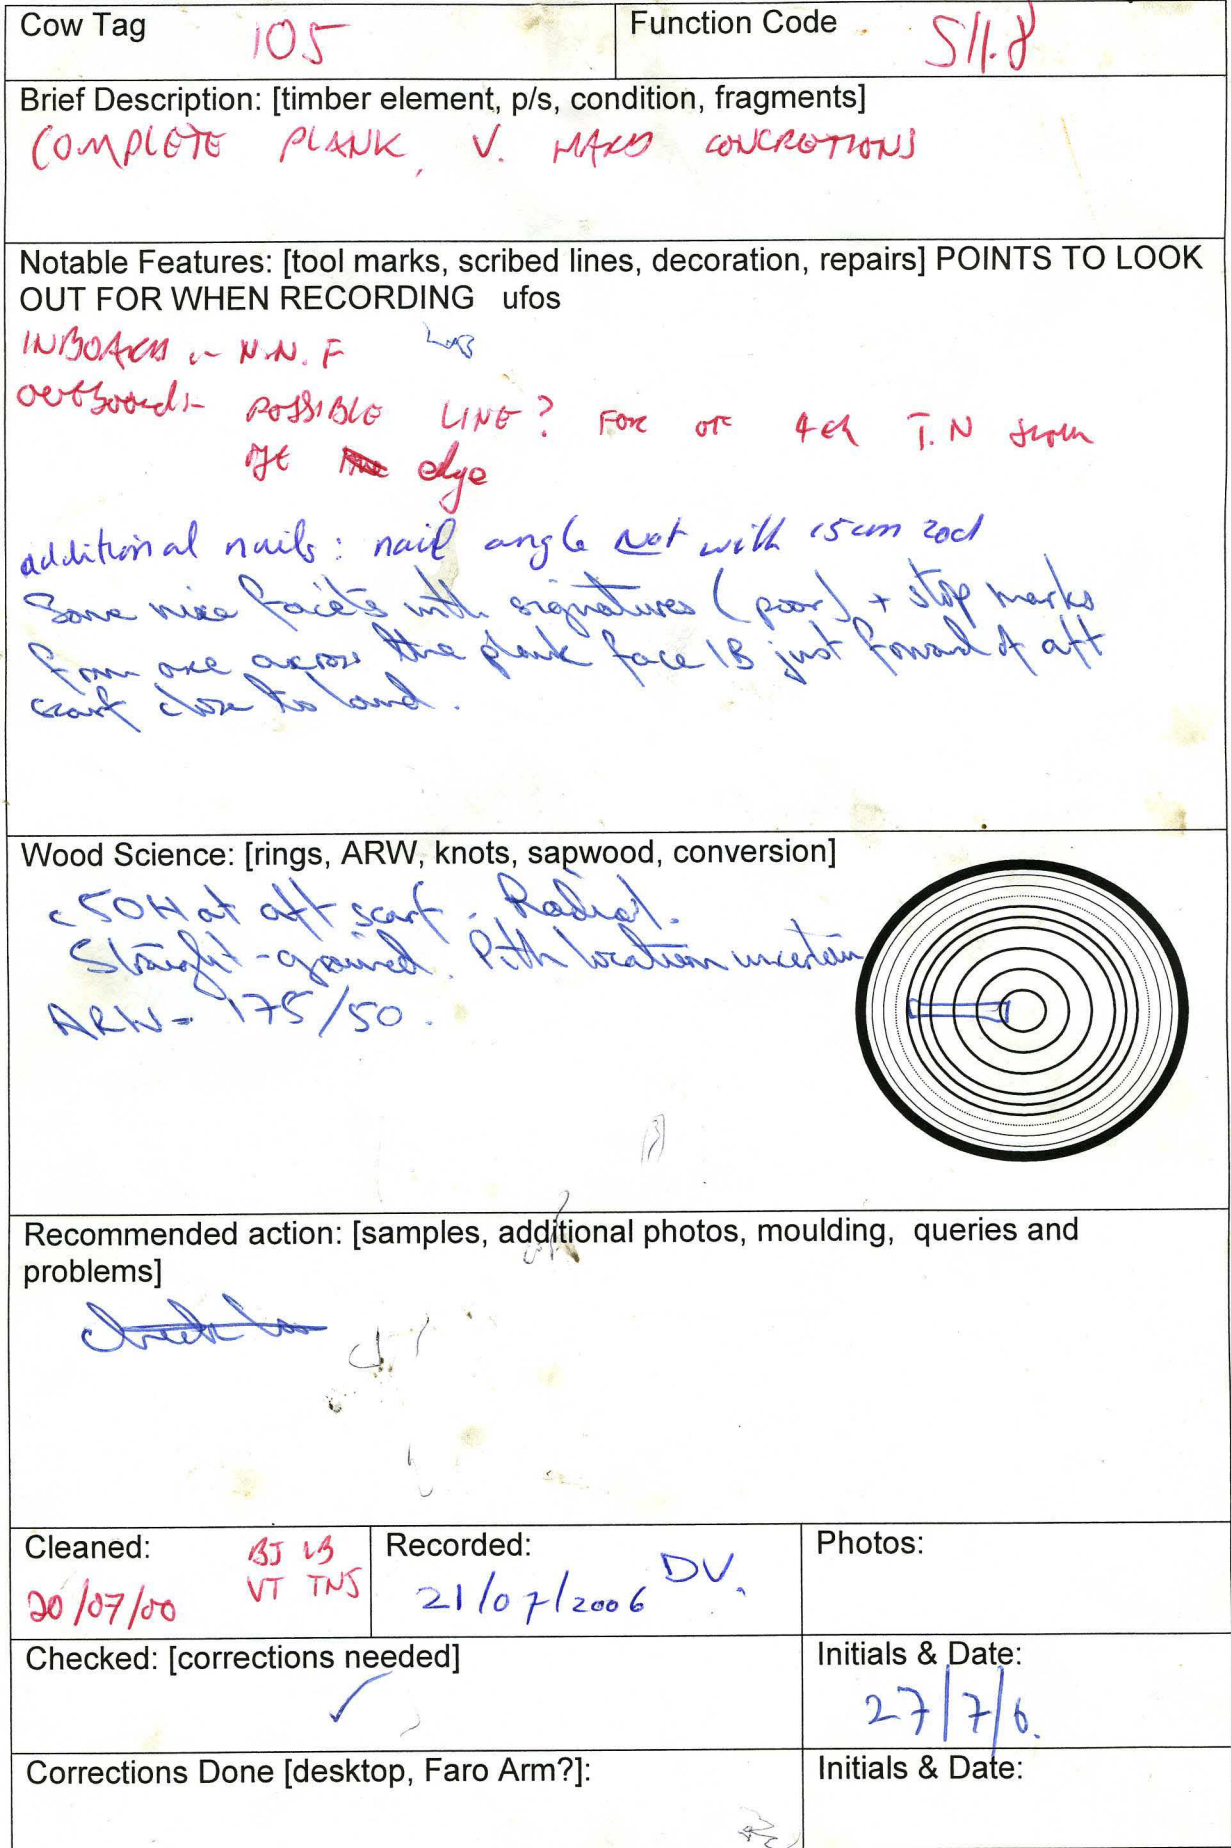 Cow Tag 105 Function Code S11.8
Brief Description: [timber element, p/s, condition, fragments]
COMPLETE PLANK, V. HARD CONCRETIONS
Notable Features: [tool marks, scribed lines, decoration, repairs] POINTS TO LOOK
OUT FOR WHEN RECORDING ufos
INBOARD :- N.N.F
outboard:- POSSIBLE LINE? FOR OF 4th T.N from
aft edge
additional nails: nail angle not with 15cm rod
Some nice facets with signatures (poor) + stop marks
from axe across the plank face IB just forward of aft
scarf close to land.
Wood Science: [rings, ARW, knots, sapwood, conversion]
c50H at aft scarf. Radial.
Straight-grained. Pith location uncertain
ARW = 175/50.
Recommended action: [samples, additional photos, moulding, queries and
problems]
Cleaned: BJ LB Recorded: DV. Photos:
20/07/00 VT TNJ 21/07/2006
Checked: [corrections needed] Initials & Date:
✓ 27/7/6.
Corrections Done [desktop, Faro Arm?]: Initials & Date: